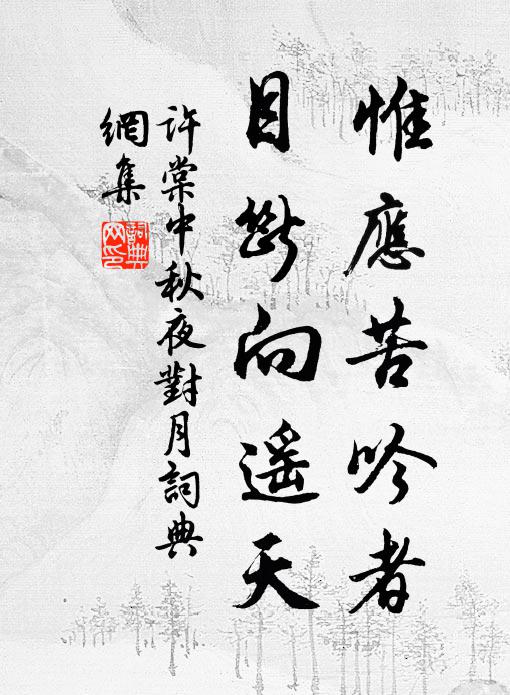 惟應苦吟者
目斷向遥天
許棠中秋夜對月詞典
網集
詞典网印